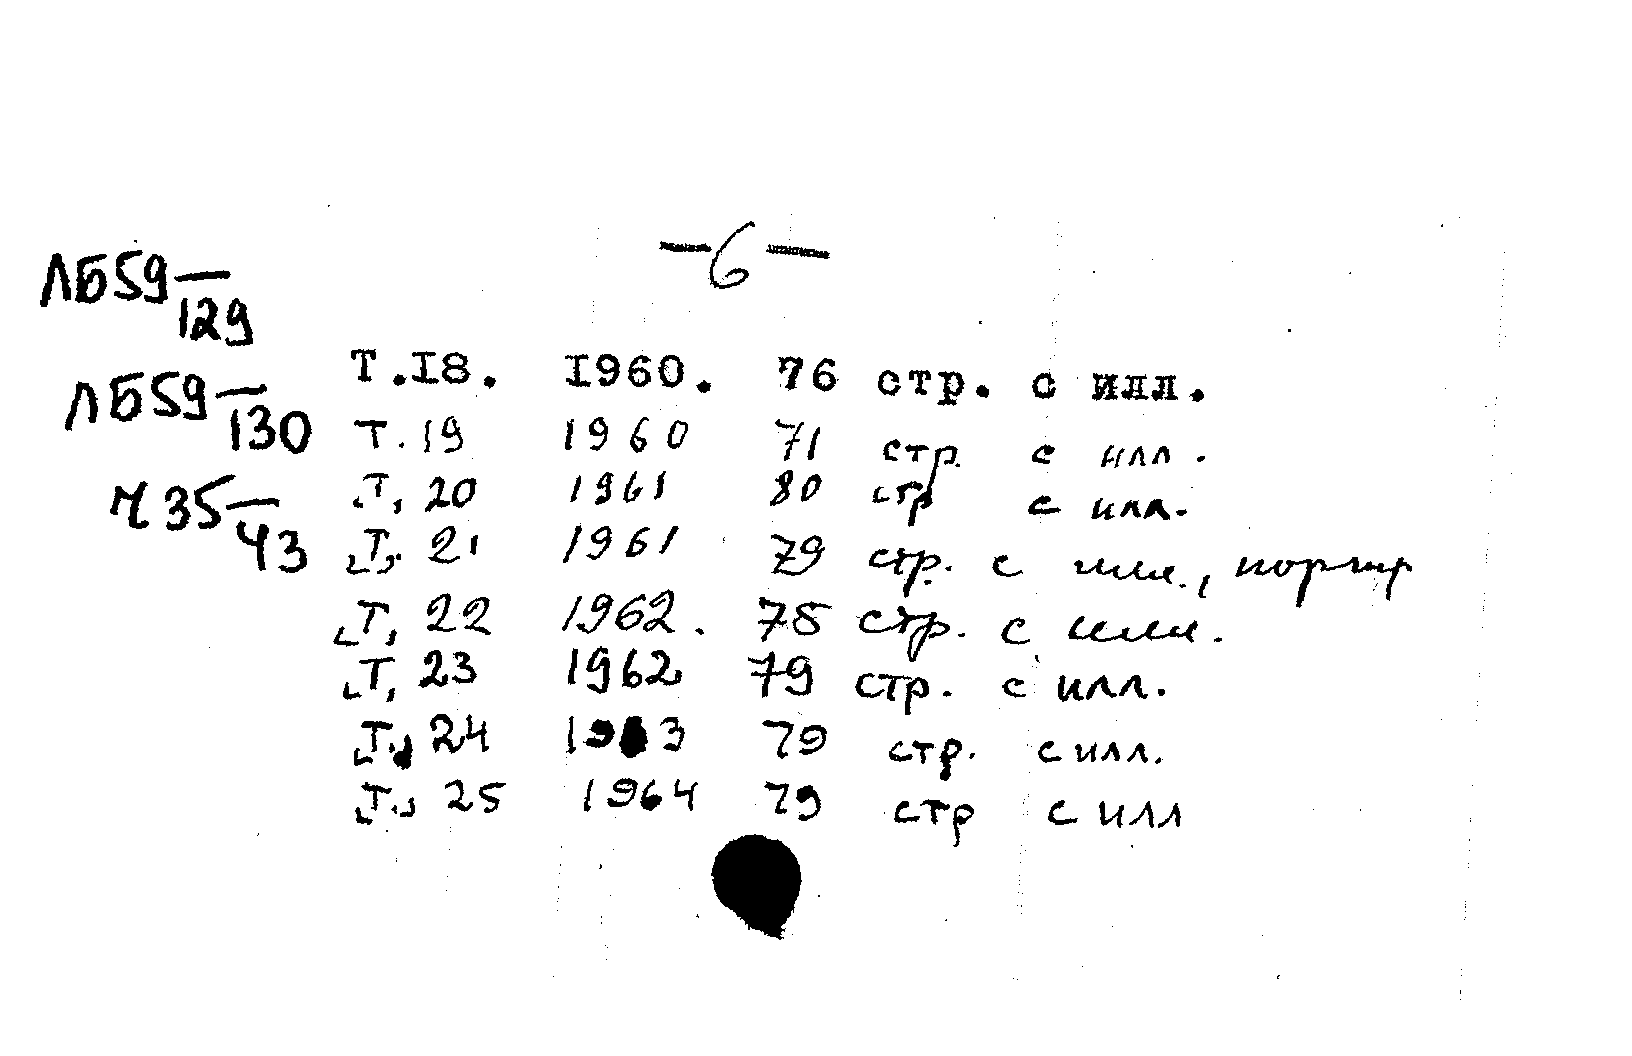 -6-
ЛБ59-
129
ЛБ59-
130
Ч35-
43
Т.I8. I960. 76 стр. с илл.
Т.19 1960 71 стр. с илл.
[Т.] 20 1961 80 стр с илл.
[Т.] 21 1961 79 стр. с илл., портр
[Т.] 22 1962. 78 стр. с илл.
[Т.] 23 1962 79 стр. с илл.
[Т.] 24 1963 79 стр. с илл.
[Т.] 25 1964 79 стр с илл